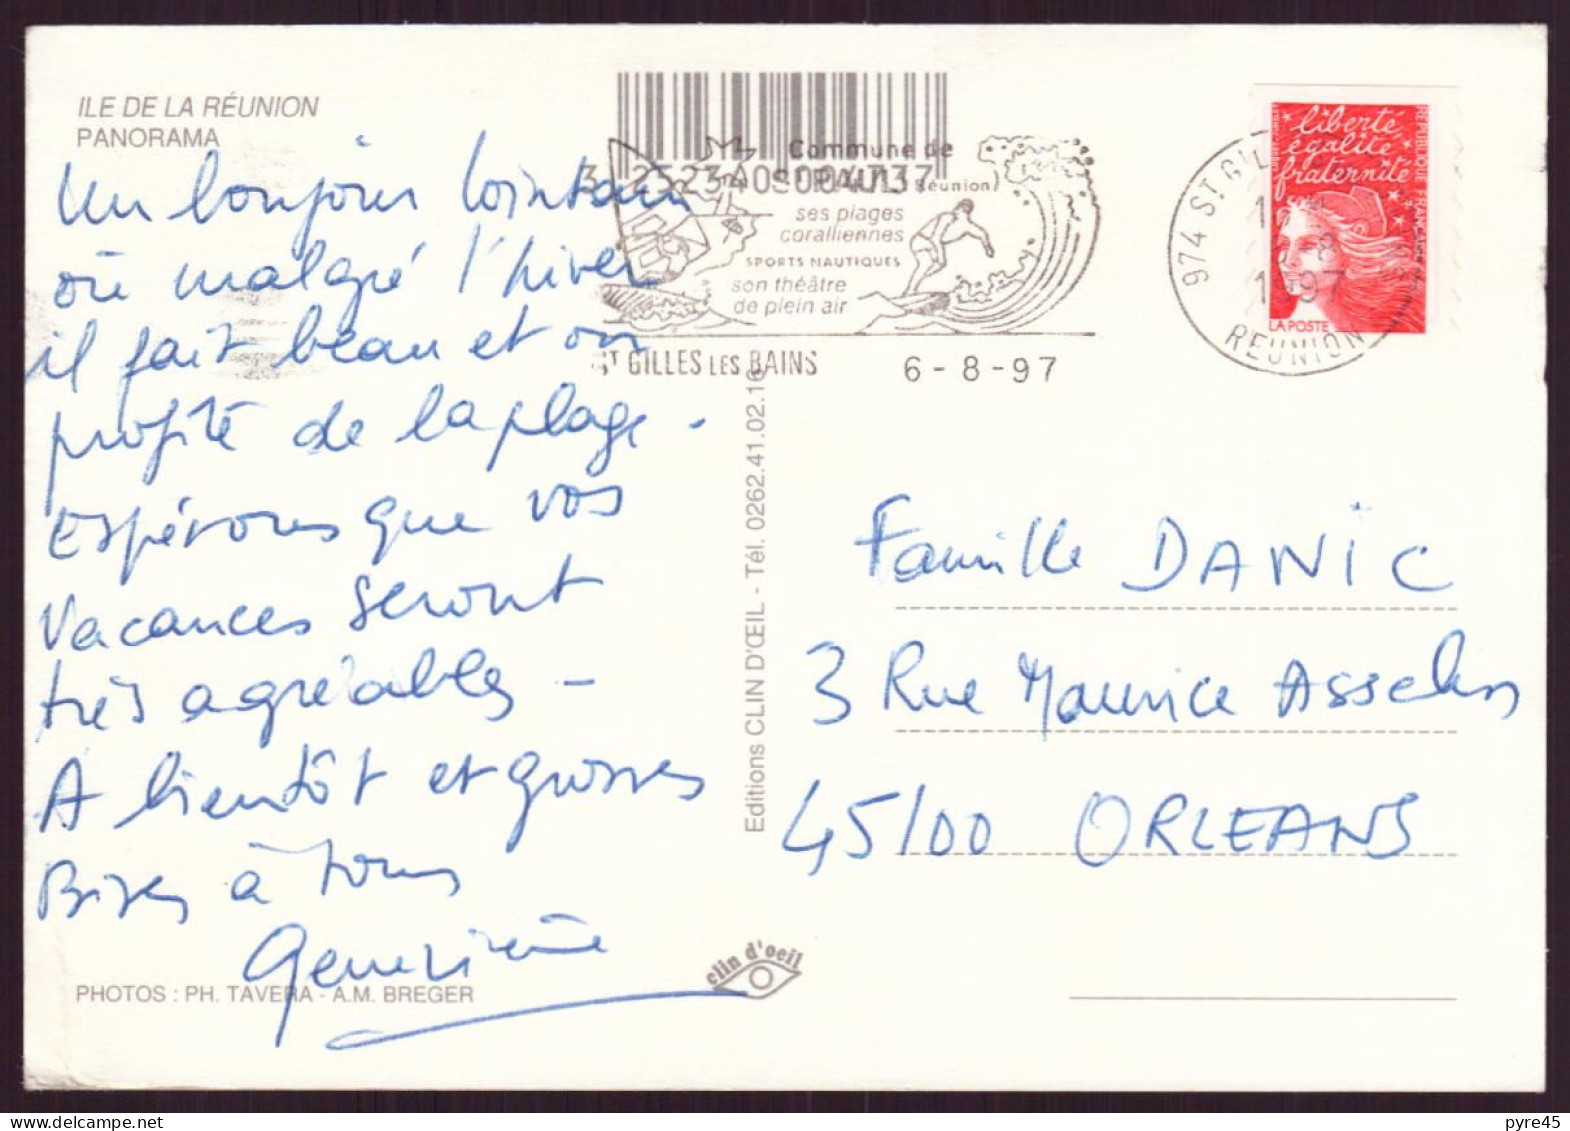 ILE DE LA RÉUNION
PANORAMA
Un bonjour lointain
où malgré l'hiver
il fait beau et on
profite de la plage.
Espérons que vos
vacances seront
très agréables -
A bientôt et grosses
Bises à tous
Geneviève
PHOTOS : PH. TAVERA - A.M. BREGER
clin d'oeil
Editions CLIN D'ŒIL - Tél. 0262.41.02.16
Commune de
ST PAUL (Réunion)
ses plages
coralliennes
SPORTS NAUTIQUES
son théâtre
de plein air
ST GILLES LES BAINS
6-8-97
974 ST GIL
REUNION
liberté
égalité
fraternité
REPUBLIQUE FRANCAISE
LA POSTE
Famille DANIC
3 Rue Maurice Asselin
45100 ORLEANS
pyre45